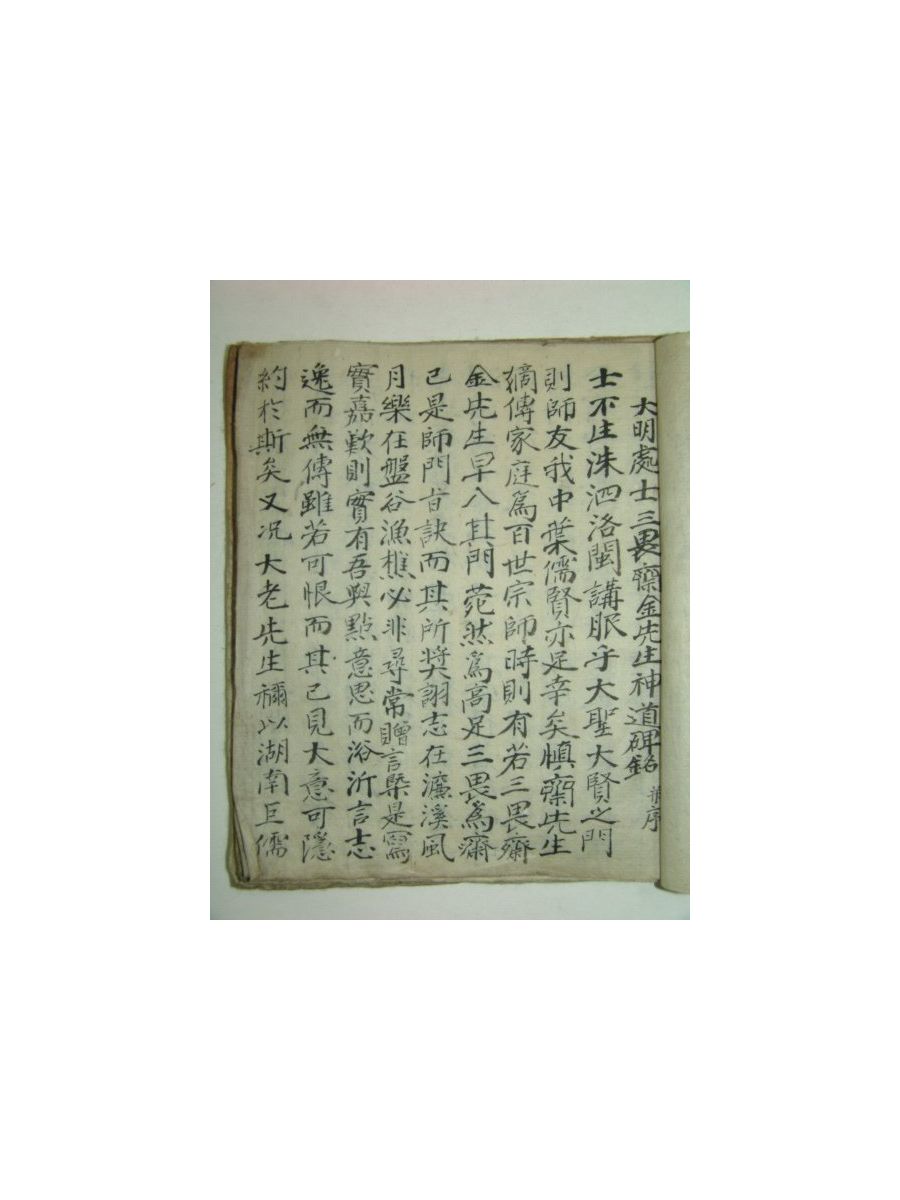 大明處士三畏齋金先生神道碑銘 幷序
士不生洙泗洛閩講服乎大聖大賢之門
則師友我中葉儒賢亦足幸矣愼齋先生
嫡傳家庭爲百世宗師時則有若三畏齋
金先生早入其門菀然爲高足三畏爲齋
已是師門旨訣而其所奬詡志在濂溪風
月樂在盤谷漁樵必非尋常贈言槩是寫
實嘉歎則實有吾與點意思而浴沂言志
逸而無傳雖若可恨而其已見大意可隱
約於斯矣又况大老先生稱以湖南巨儒